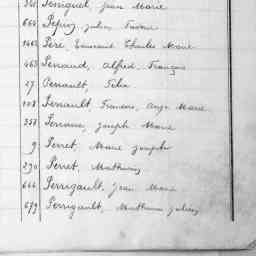 Jean Marie
664 Julien
Père, Edouard Charles Marie
463 Perraud, Alfred, François
27 Perrault, Felix
108 Perrault, François, Ange Marie
358 Joseph Marie
9 Perret, Marie Joseph
290 Perret, Mathurin
666 Perrigault, Jean Marie
679 Perrigault, Mathurin Julien